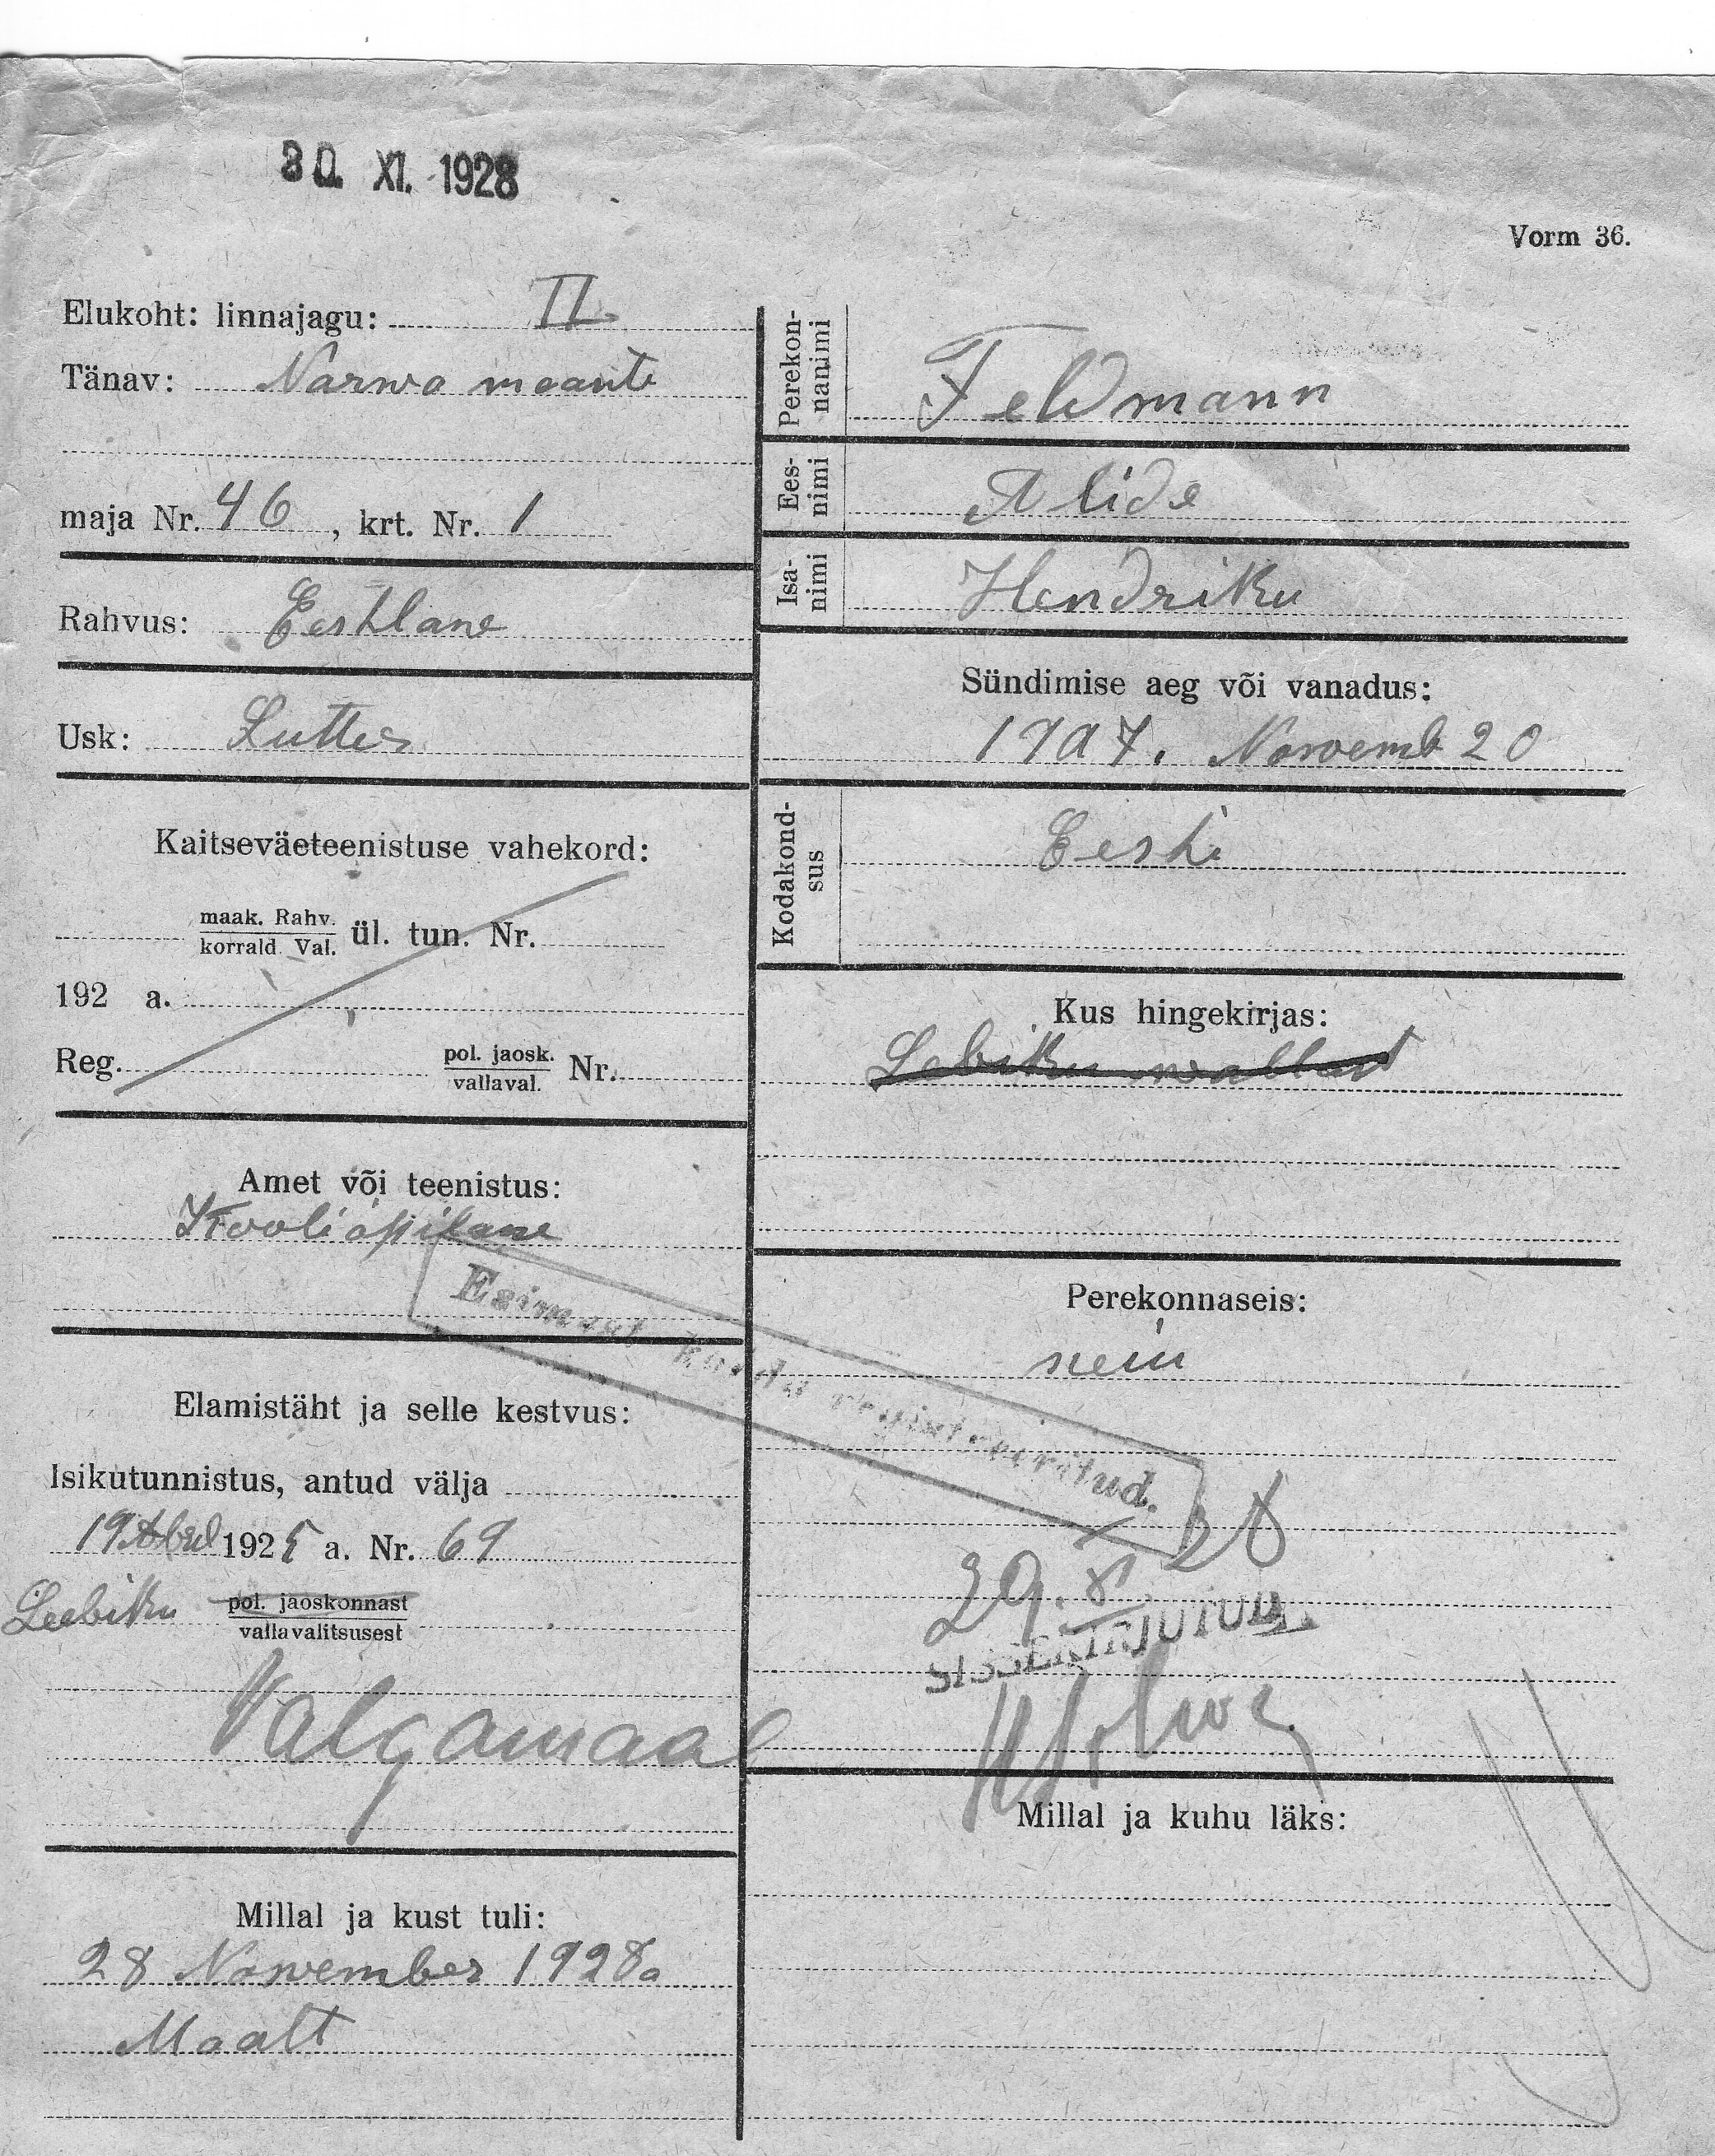 30. XI. 1928
Vorm 36.
Elukoht: linnajagu: II
Tänav: Narwa maante
maja Nr. 46, krt. Nr. 1
Rahvus: Eestlane
Usk: Lutter
Kaitseväeteenistuse vahekord:
maak. Rahv.
korrald. Val. ül. tun. Nr.
192 a.
Reg. pol. jaosk.
vallaval. Nr.
Amet või teenistus:
Kooliõpilane
Elamistäht ja selle kestvus:
Isikutunnistus, antud välja
19 1925 a. Nr. 69
Leebiku pol. jaoskonnast
vallavalitsusest
Valgamaal
Millal ja kust tuli:
28 November 1928a
Maalt
Perekon-
nanimi
Feldmann
Ees-
nimi
Alide
Isa-
nimi
Hendriku
Sündimise aeg või vanadus:
1907. Novemb 20
Kodakond-
sus
Eesti
Kus hingekirjas:
Lebiku wallast
Perekonnaseis:
nein
Esimest korda registreeritud.
29. X 28
SISSEKIRJUTUD.
Millal ja kuhu läks: